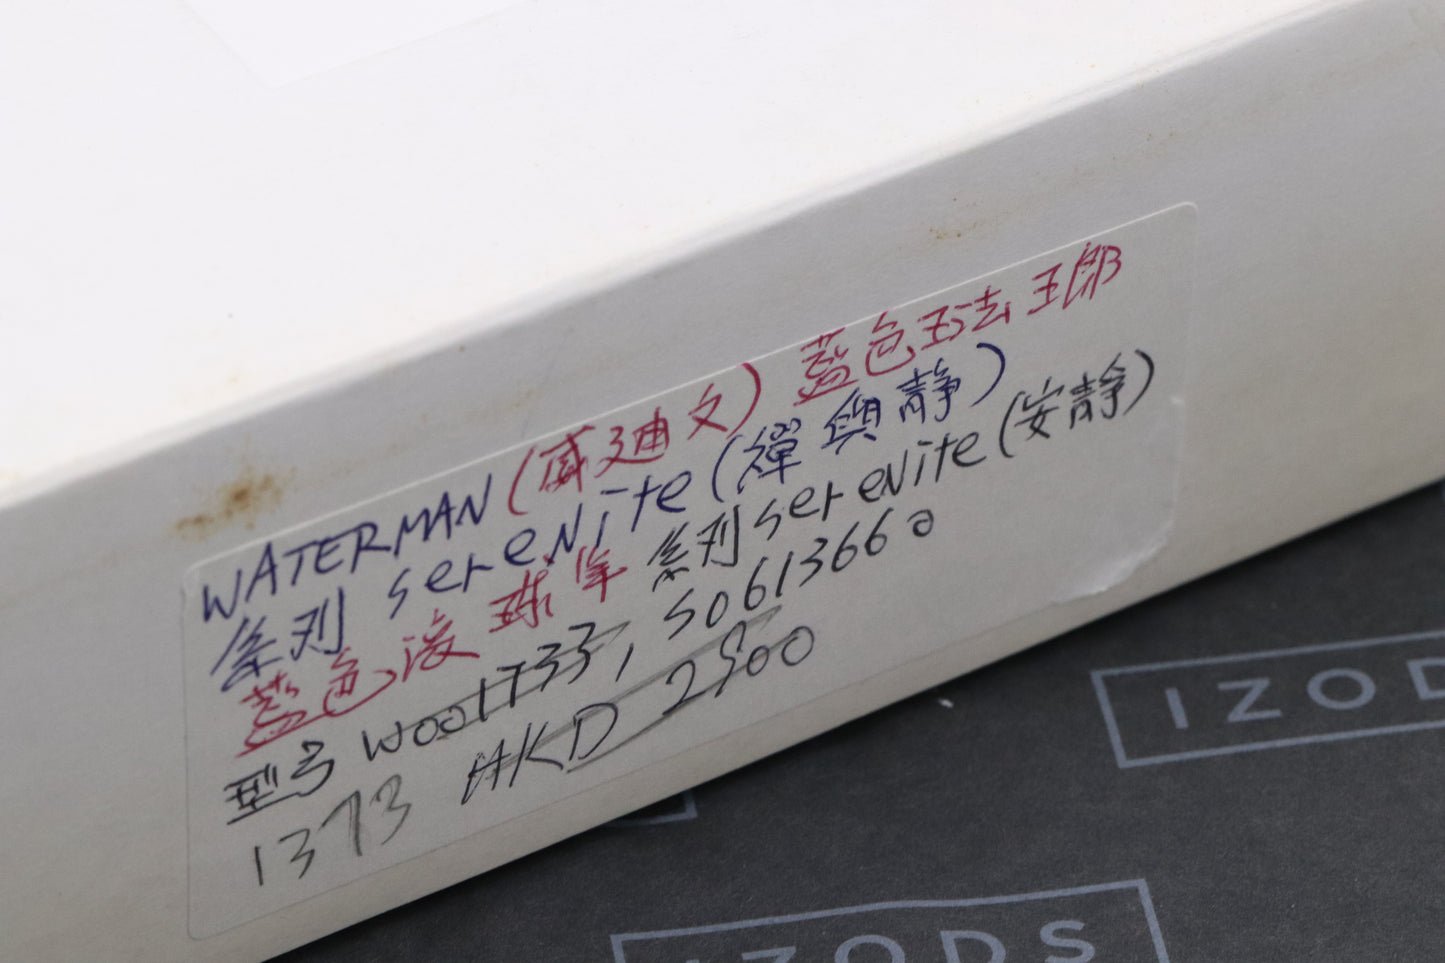 WATERMAN (威迪文) 藍色琺王郎
系列 serenite (禪與靜)
藍色凌球筆 系列 serenite (安靜)
型号 W001T33, S0613660
1373 HKD 2900
IZOD
IZODS